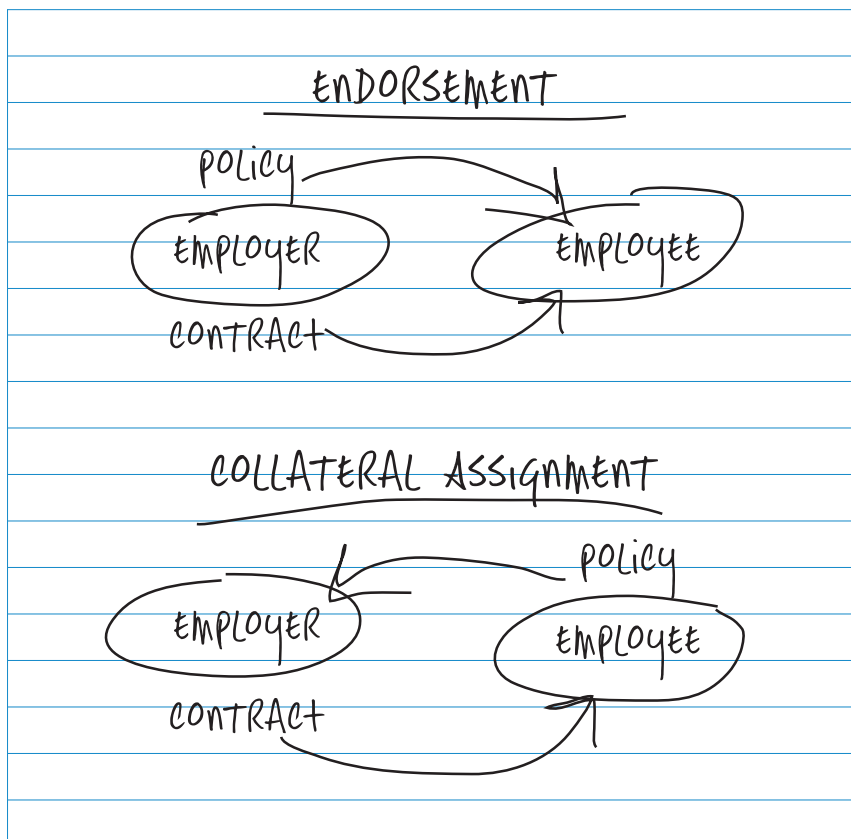 ENDORSEMENT
POLICY
EMPLOYER EMPLOYEE
CONTRACT
COLLATERAL ASSIGNMENT
POLICY
EMPLOYER EMPLOYEE
CONTRACT